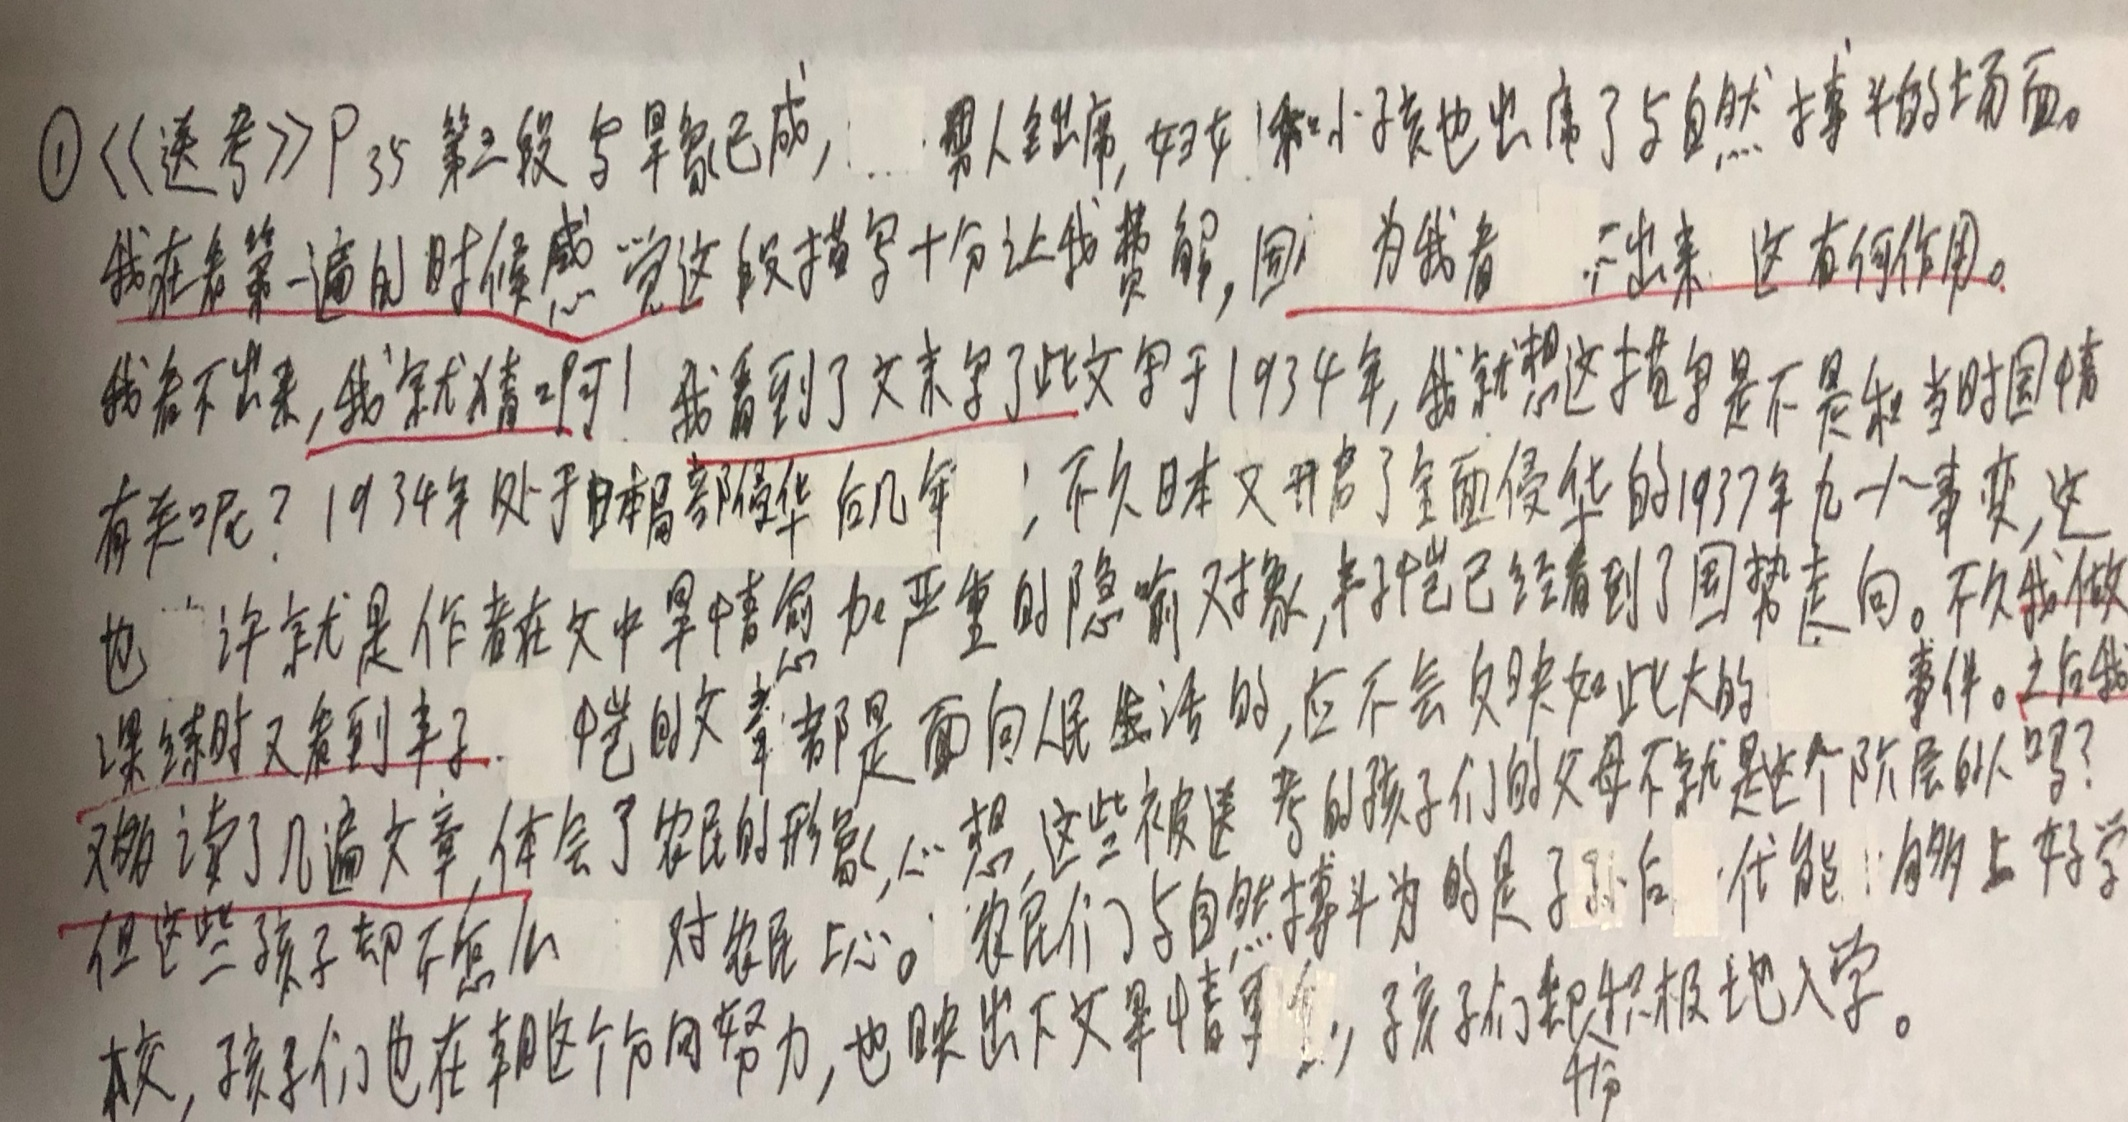 ①《《送考》》P35 第二段写旱象已成, 男人全出席,妇女和小孩也出席了与自然搏斗的场面。
我在看第一遍的时候感觉这段描写十分让我费解,因为我看不出来 这有何作用。
我看不出来,我就猜呵!我看到了文末写了此文写于1934年,我就想这描写是不是和当时国情
有关呢?1934年处于日本局部侵华后几年;不久日本又开启了全面侵华的1937年九一八事变,这
也许就是作者在文中旱情愈加严重的隐喻对象,丰子恺已经看到了国势走向。不久我做
课练时又看到丰子恺的文章都是面向人民生活的,应不会反映如此大的事件。之后我
又读了几遍文章,体会了农民的形象,心想,这些被送考的孩子们的父母不就是这个阶层的人吗?
但这些孩子却不怎么对农民上心。农民们与自然搏斗为的是子孙后代能够上好学
校,孩子们也在朝这个方向努力,也映出下文旱情重,孩子们却十分积极地入学。